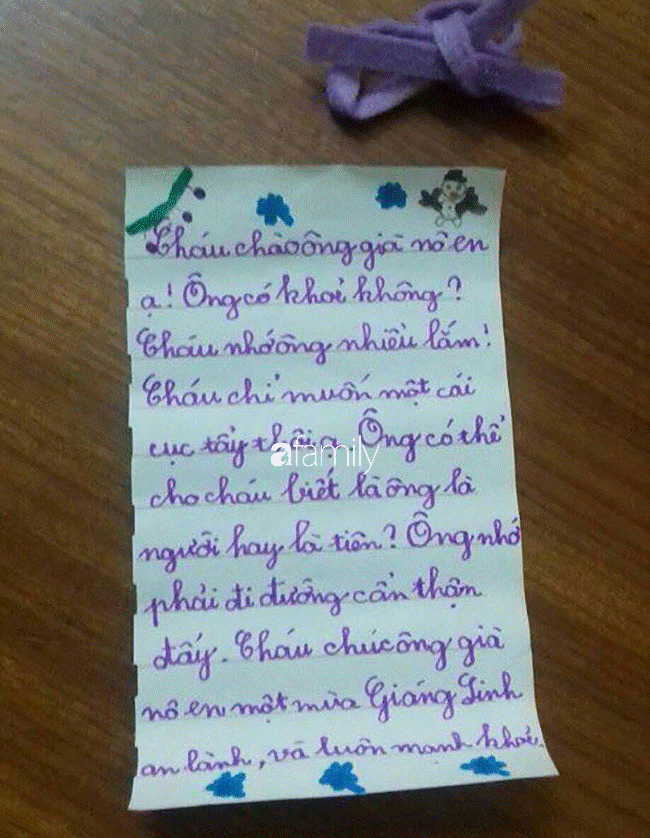 Cháu chào ông già nô en
ạ! Ông có khoẻ không?
Cháu nhớ ông nhiều lắm!
Cháu chỉ muốn một cái
cục tẩy thôi ạ. Ông có thể
afamily
cho cháu biết là ông là
người hay là tiên? Ông nhớ
phải đi đường cẩn thận
đấy. Cháu chúc ông già
nô en một mùa Giáng Sinh
an lành, và luôn mạnh khoẻ.